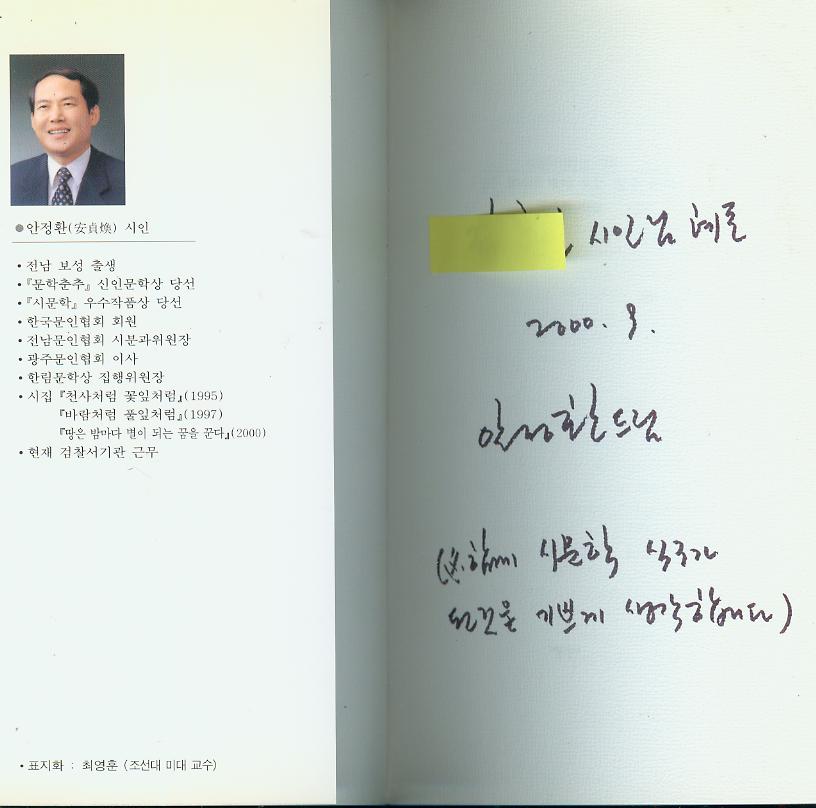 ●안정환(安貞煥) 시인
• 전남 보성 출생
• 『문학춘추』 신인문학상 당선
• 『시문학』 우수작품상 당선
• 한국문인협회 회원
• 전남문인협회 시분과위원장
• 광주문인협회 이사
• 한림문학상 집행위원장
• 시집 『천사처럼 꽃잎처럼』(1995)
『바람처럼 풀잎처럼』(1997)
『땅은 밤마다 별이 되는 꿈을 꾼다』(2000)
• 현재 검찰서기관 근무
• 표지화 : 최영훈 (조선대 미대 교수)
시인님 혜존
2000. 9.
안정환 드림
함께 시문학 식구가
된것을 기쁘게 생각합니다)